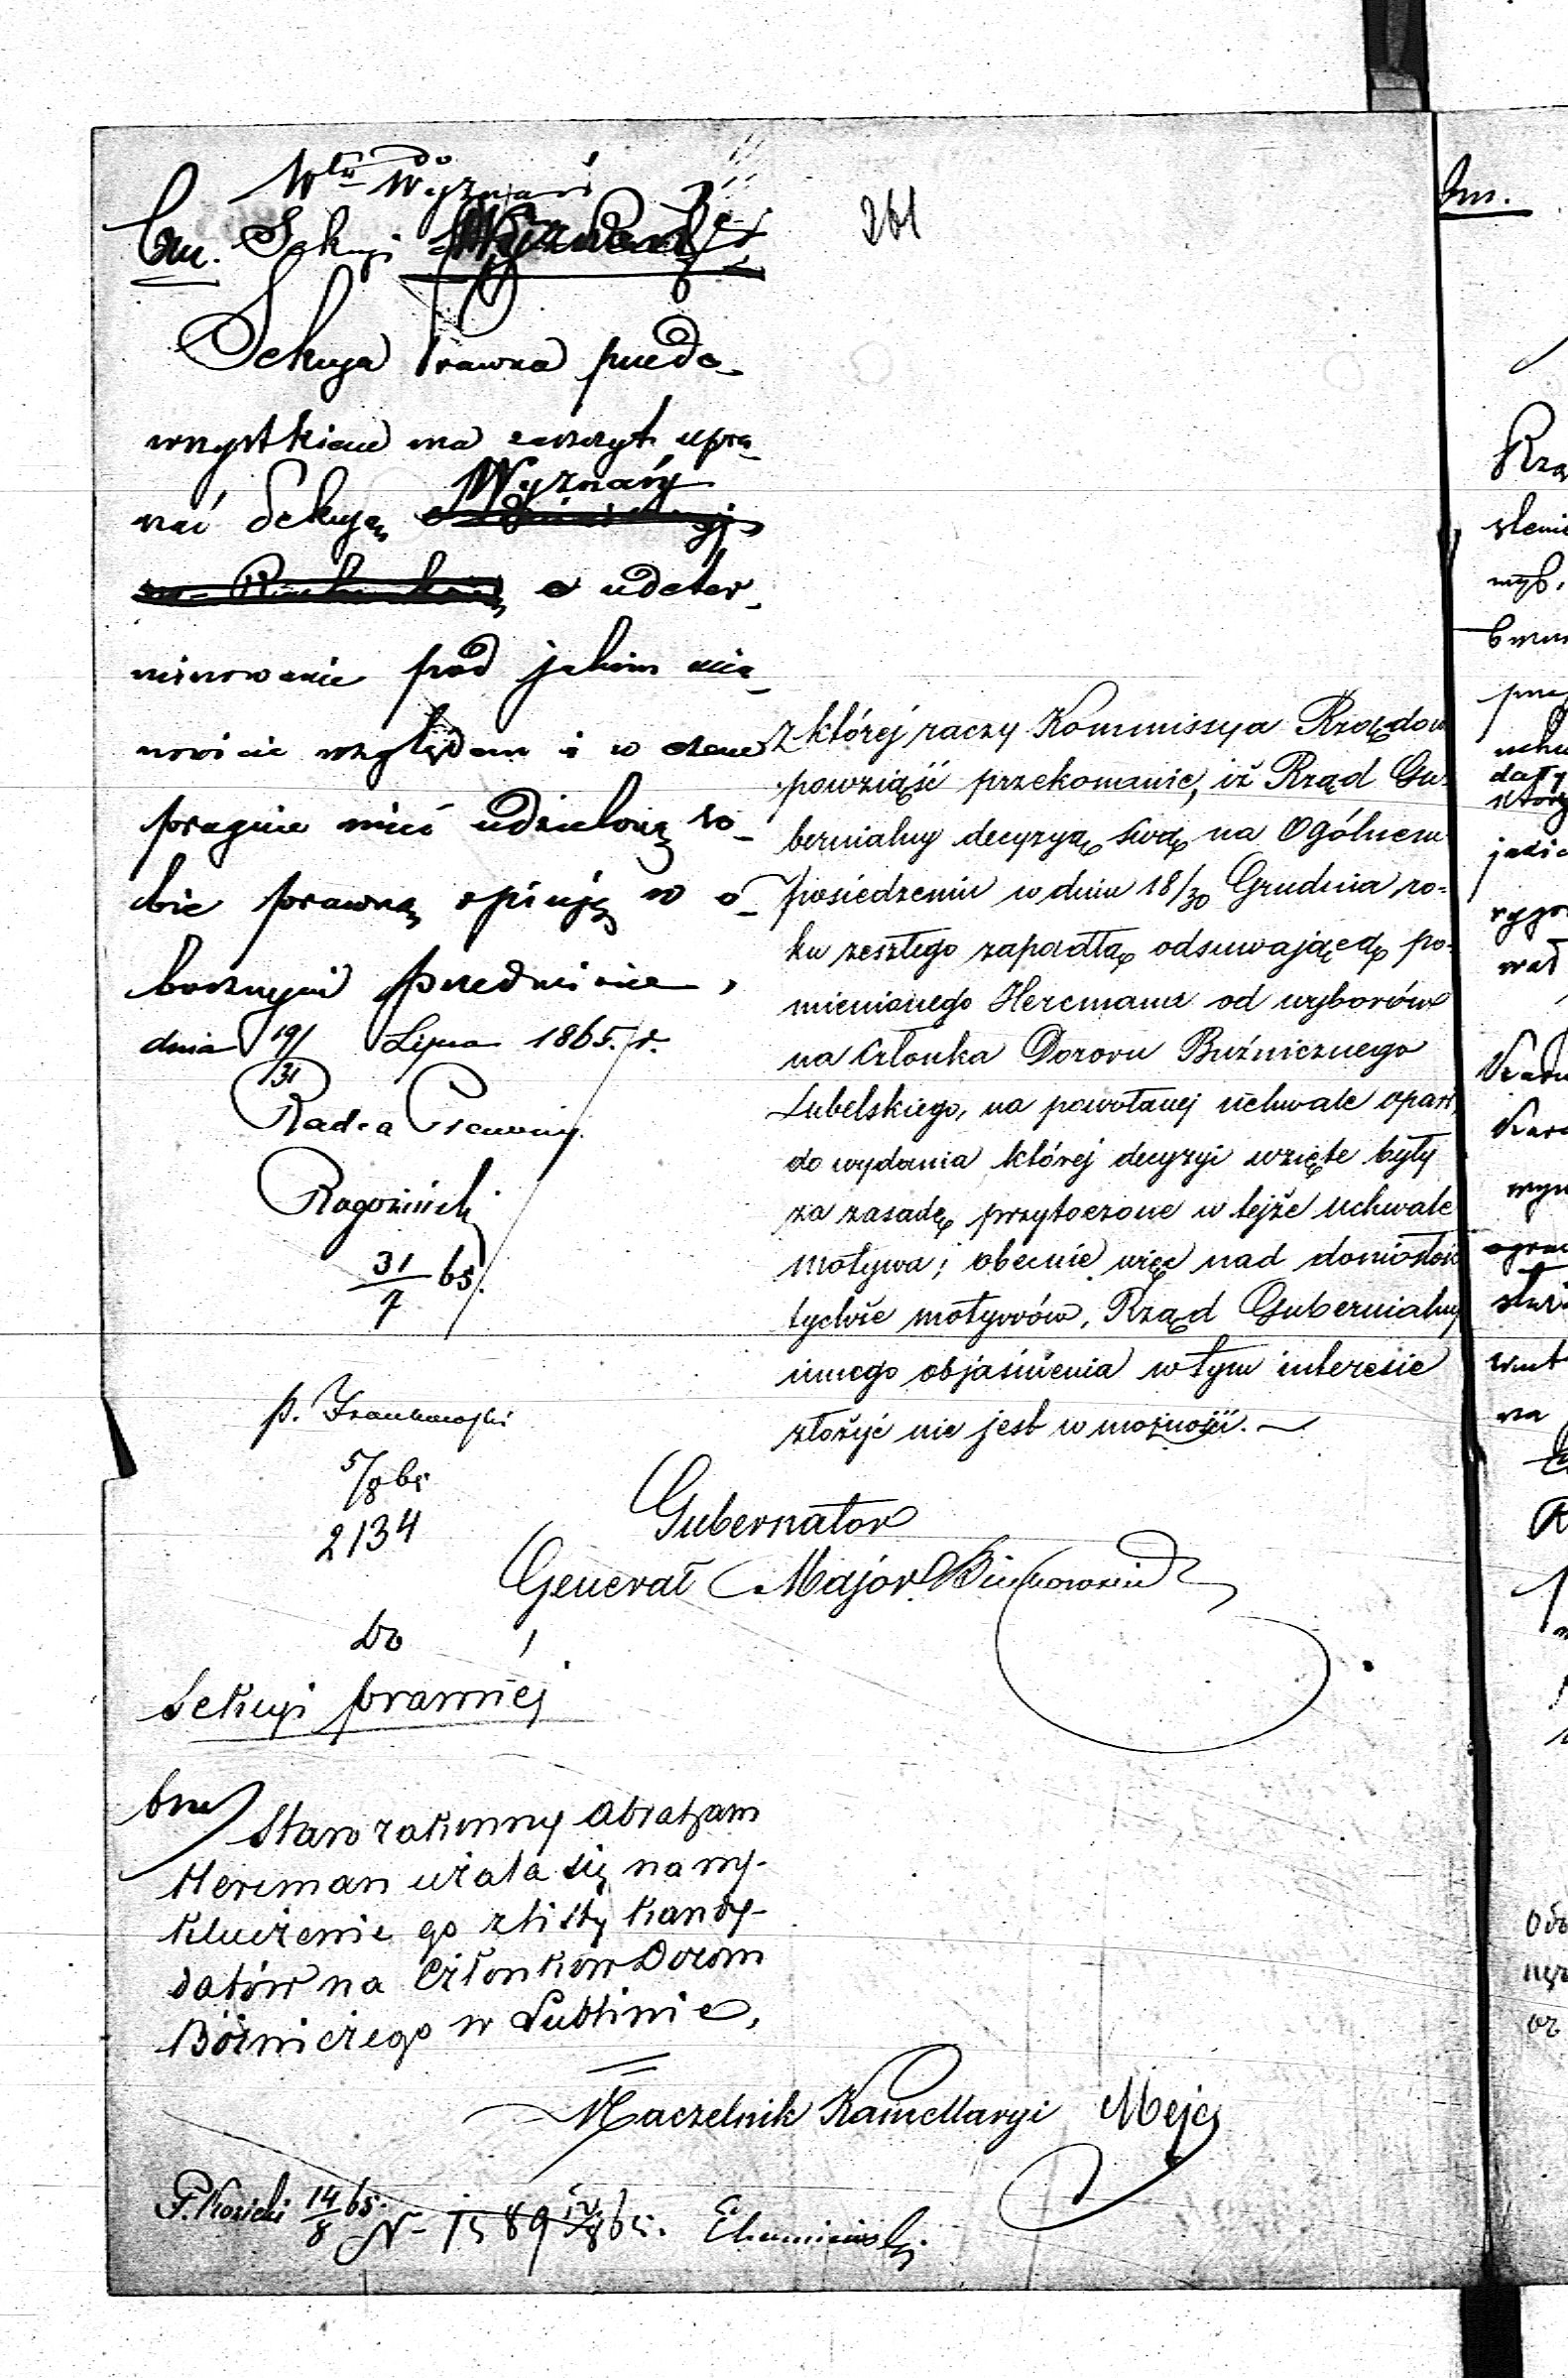 do
Włu Wyznań
bm. Sekcyi
261
Sekcya Prawna przede-
wszystkiem ma zaszczyt upra-
szać Sekcyę Wyznań
o udeter-
minowanie pod jakim mia-
nowicie względem i w czem
pragnie mieć udzieloną so-
bie prawną opinję w o-
becnym przedmiocie,
dnia 19/31 Lipca 1865. r.
Radca Prawny
Rogoziński
31/7 65.
p. Frankowski
5/8 65
2134
z której raczy Kommissya Rządow
powziąść przekonanie, iż Rząd Gu-
bernialny decyzyą swą na Ogólnem
posiedzeniu w dniu 18/30 Grudnia ro-
ku zeszłego zapadłą odsuwającą po-
mienionego Hercmana od wyborów
na Członka Dozoru Bużnicznego
Lubelskiego, na powołanej uchwale opart
do wydania której decyzyi wzięte były
za zasadę przytoczone w tejże uchwale
motywa; obecnie więc nad doniosłość
tychże motywów, Rząd Gubernialny
innego objaśnienia w tym interesie
złożyć nie jest w możności.
Gubernator
Generał Major
Do
Sekcyi prawnéj
bm
Starozakonny Abraham
Hercman użala się na wy-
kluczenie go z listy kandy-
datów na Członków Dozoru
Bóżniczego w Lublinie,
Naczelnik Kancellaryi
P. Kosicki 14/8 65.
N- 1589 65.